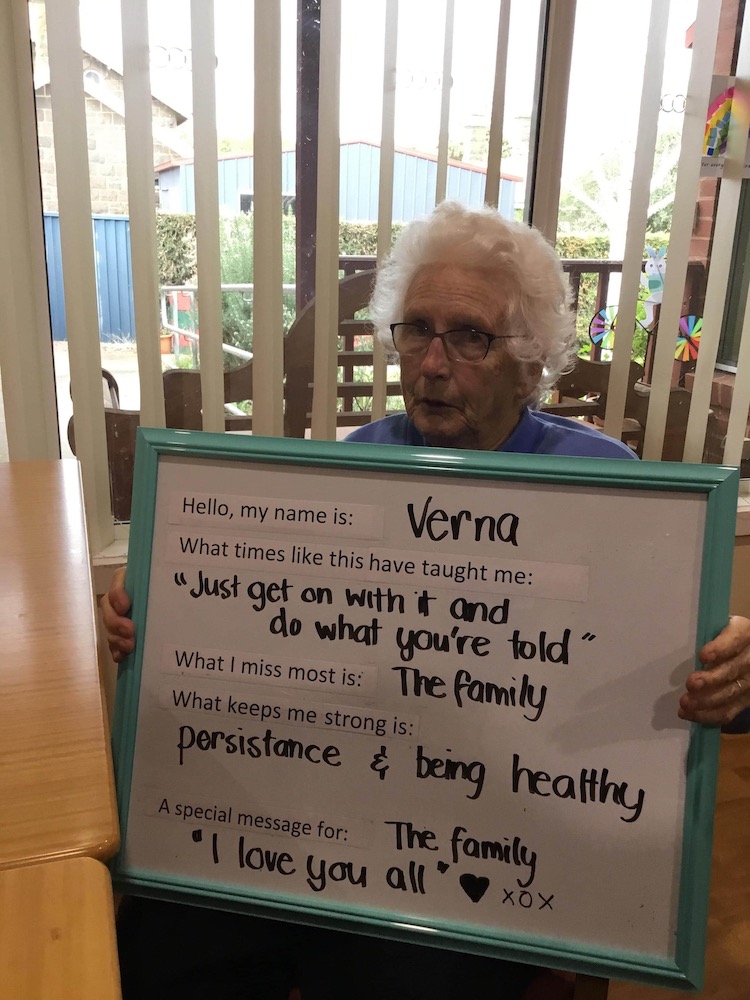 Hello, my name is: Verna
What times like this have taught me:
"Just get on with it and
do what you're told"
What I miss most is: The family
What keeps me strong is:
persistance & being healthy
A special message for: The family
"I love you all" ♥ xox